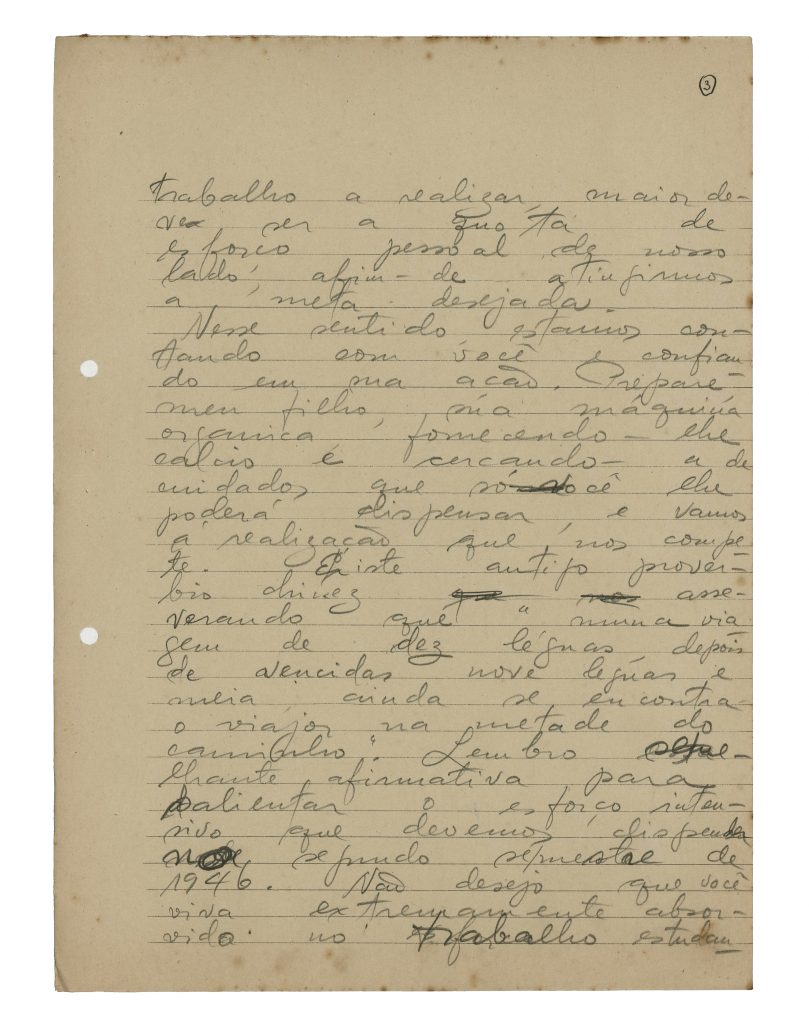 3
trabalho a realizar, maior de-
ve ser a quota de
esforço pessoal de nosso
lado, afim-de atingirmos
a meta desejada.
Nesse sentido estamos con-
tando com você e confian
do em sua ação. Prepare-
meu filho, sua máquina
organica, fornecendo-lhe
calcio e cercando-a de
cuidados que só você lhe
poderá dispensar, e vamos
á realização que nos compe
te. Existe antigo prover-
bio chinez asse-
verando que "numa via
gem de dez léguas, depois
de vencidas nove leguas e
meia, ainda se encontra
o viajor na metade do
caminho". Lembro seme-
lhante afirmativa para
salientar o esforço inten-
sivo que devemos dispender
no segundo semestre de
1946. Não desejo que você
viva extremamente absor-
vido no trabalho estudan